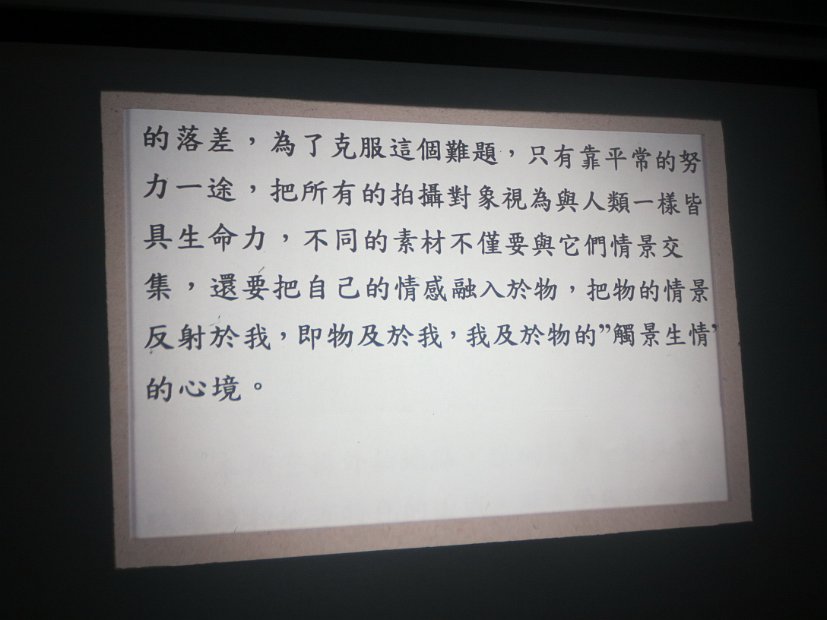 的落差，為了克服這個難題，只有靠平常的努
力一途，把所有的拍攝對象視為與人類一樣皆
具生命力，不同的素材不僅要與它們情景交
集，還要把自己的情感融入於物，把物的情景
反射於我，即物及於我，我及於物的”觸景生情”
的心境。